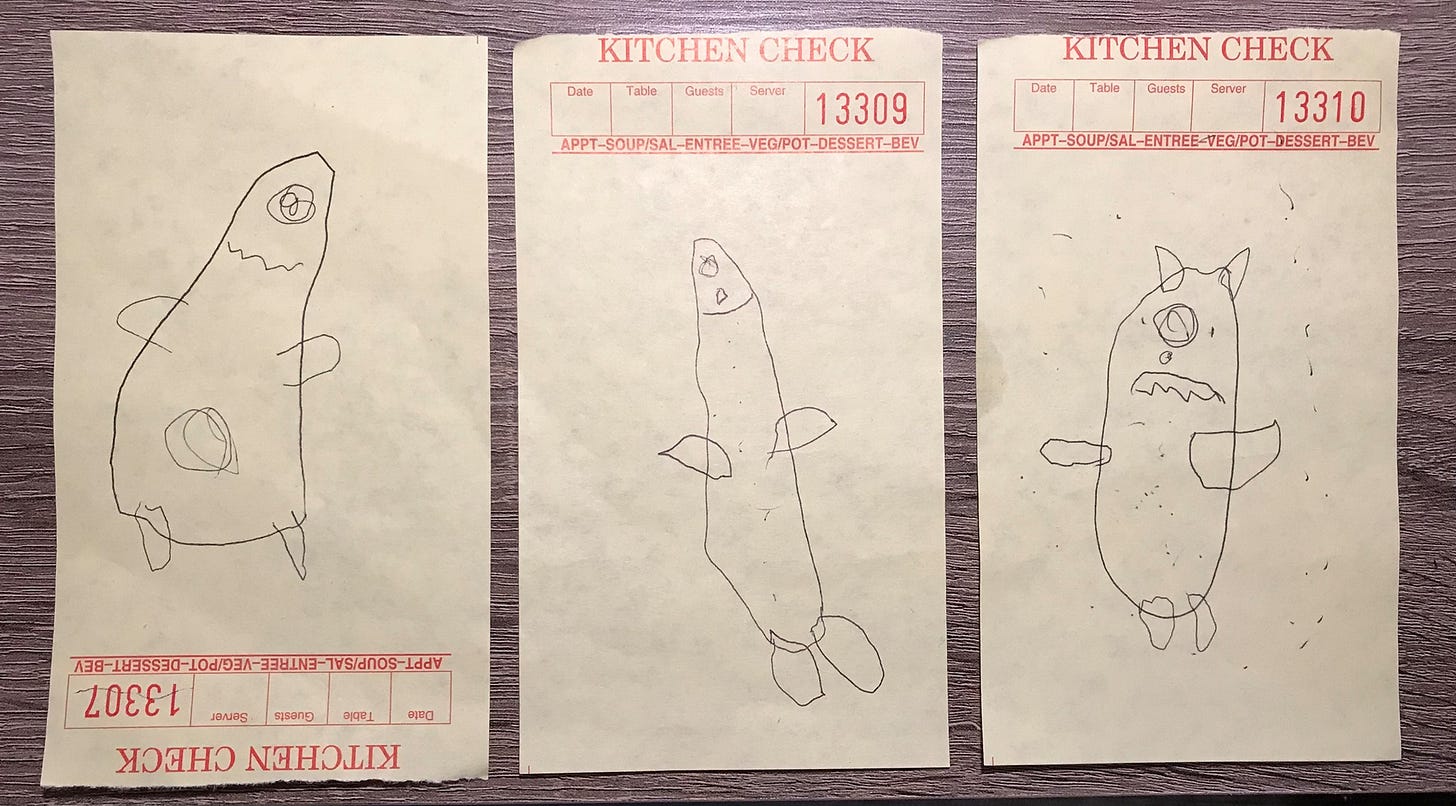 APPT–SOUP/SAL–ENTREE–VEG/POT–DESSERT–BEV
Date Table Guests Server 13307
KITCHEN CHECK
KITCHEN CHECK
Date Table Guests Server 13309
APPT–SOUP/SAL–ENTREE–VEG/POT–DESSERT–BEV
KITCHEN CHECK
Date Table Guests Server 13310
APPT–SOUP/SAL–ENTREE–VEG/POT–DESSERT–BEV